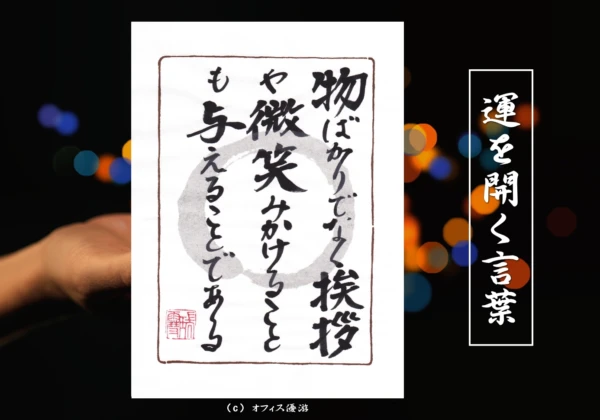 運を開く言葉
物ばかりでなく挨拶
や微笑みかけること
も与えることである
(c) オフィス優游